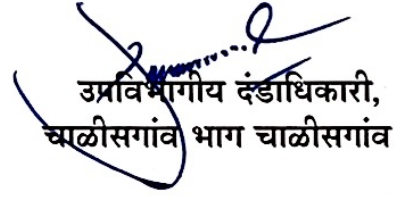 उपविभागीय दंडाधिकारी,
चाळीसगांव भाग चाळीसगांव